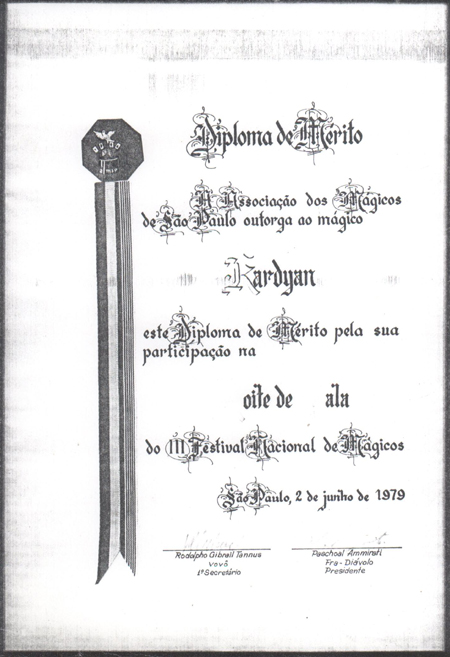 Diploma de Mérito
A Associação dos Mágicos
de São Paulo outorga ao mágico
Kardyan
este Diploma de Mérito pela sua
participação na
oite de ala
do III Festival Nacional de Mágicos
São Paulo, 2 de junho de 1979
Rodolpho Gibrail Tannus
Vovô
1º Secretário
Paschoal Ammirati
Fra-Diávolo
Presidente